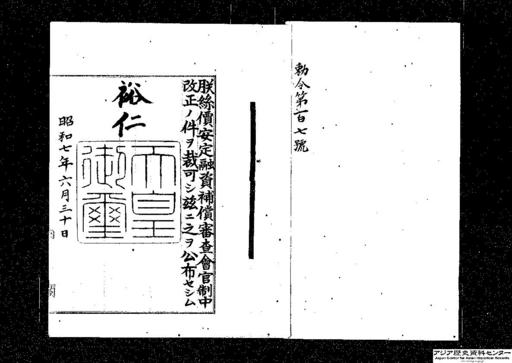 勅令第百七號
朕絲價安定融資補償審査會官制中
改正ノ件ヲ裁可シ茲ニ之ヲ公布セシム
裕仁
天皇
御璽
昭和七年六月三十日
アジア歴史資料センター
Japan Center for Asian Historical Records